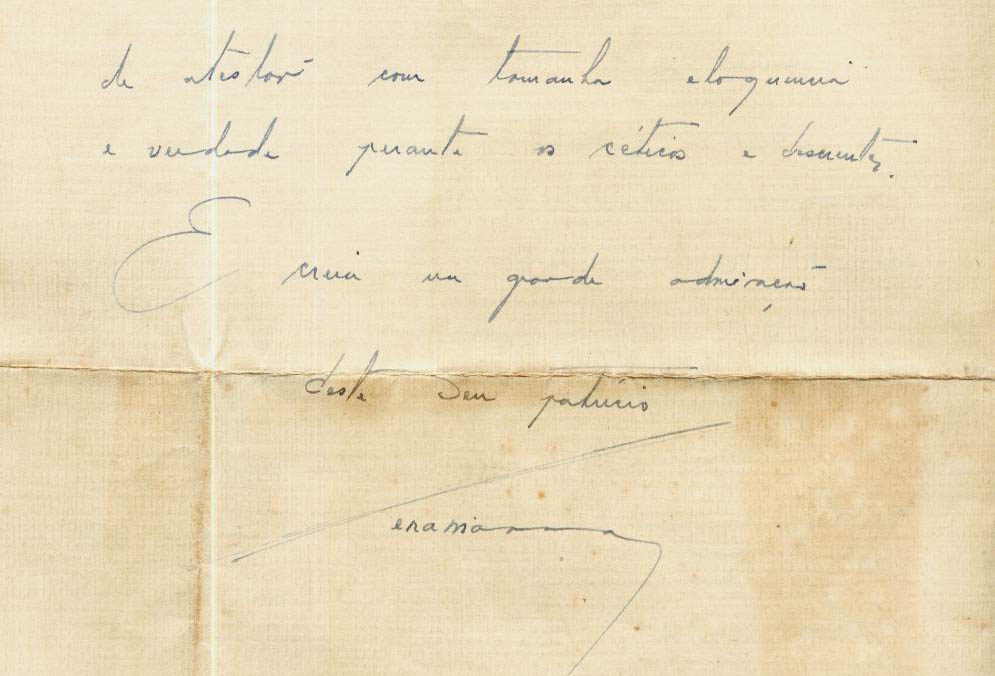 de atestar com tamanha eloquencia
e verdade perante os céticos e descrentes.
E creia na grande admiração
deste seu patrício